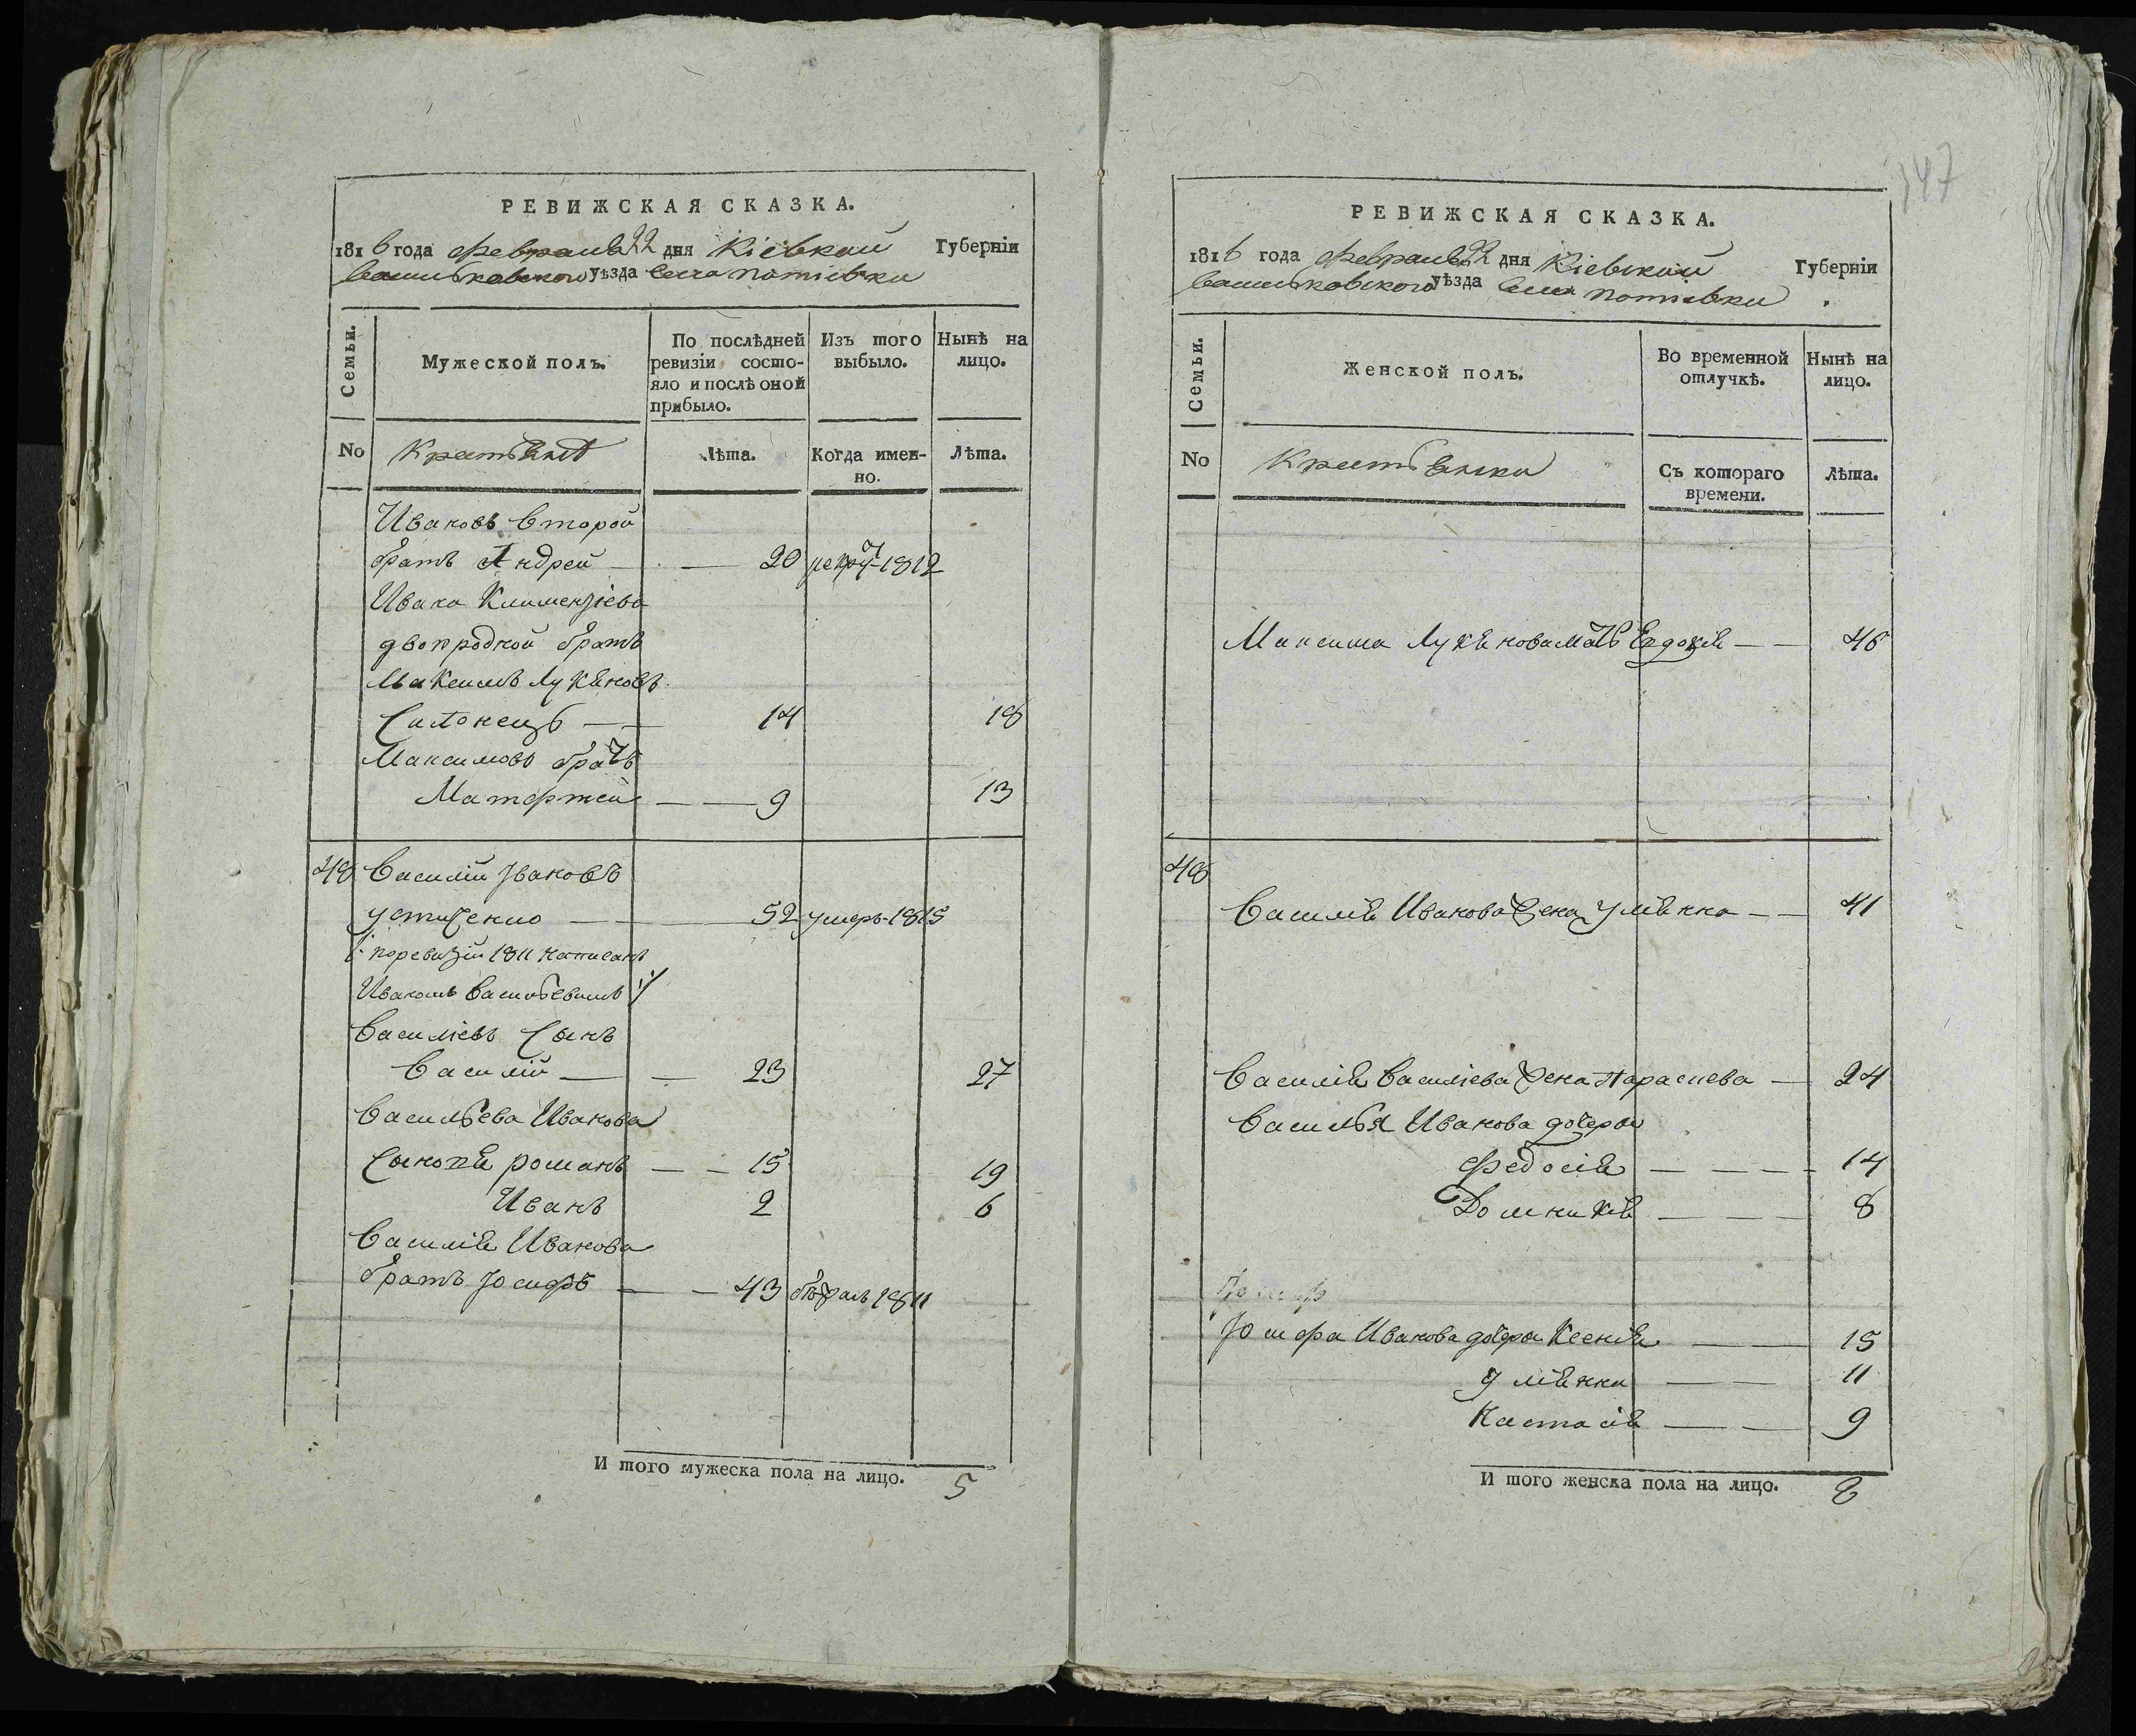 РЕВИЖСКАЯ СКАЗКА.
1816 года Февраля 22 дня Кіевской Губерніи
Васильковского уѣзда Села Потіевки
Семьи.
Мужеской полъ.
По послѣдней ревизіи состо-
яло и послѣ оной
прибыло.
Изъ того
выбыло.
Нынѣ на
лицо.
No
Крестьянѣ
Лѣта.
Когда имен-
но.
Лѣта.
Ивановъ второй
братъ Андрей — 20 1812
Ивана Климентіева
двопродной братъ
Максимъ Лукяновъ
14 18
Максимовъ братъ
Матфтей — — 9 13
48 Василій Ивановъ
Устиченко — 52 умеръ-1815
поревизіи 1811 написанъ
Иваномъ Васильевымъ
Василіевъ Сынъ
Василій — — 23 27
Васильева Иванова
Сыновя романъ — — 15 19
Иванъ 2 6
Василія Иванова
братъ Іосифъ — — 43 бѣжалъ 1811
И того мужеска пола на лицо. 5
147
РЕВИЖСКАЯ СКАЗКА.
1816 года Февраля 22 дня Кіевской Губерніи
Васильковского уѣзда Села Потіевки
Семьи.
Женской полъ.
Во временной
отлучкѣ.
Нынѣ на
лицо.
No
Крестьянки
Съ котораго
времени.
Лѣта.
Максима Лукянова мать Евдокія — — 46
48
Василія Иванова жена Уліянна — — 41
Василія Василіева жена Параскева — 24
Василья Иванова дочери
Федосія — — — — 14
Домникія — — — 8
Іосифа Иванова дочери Ксенія — — 15
Уліянна — — 11
Настасія — — 9
И того женска пола на лицо. 8